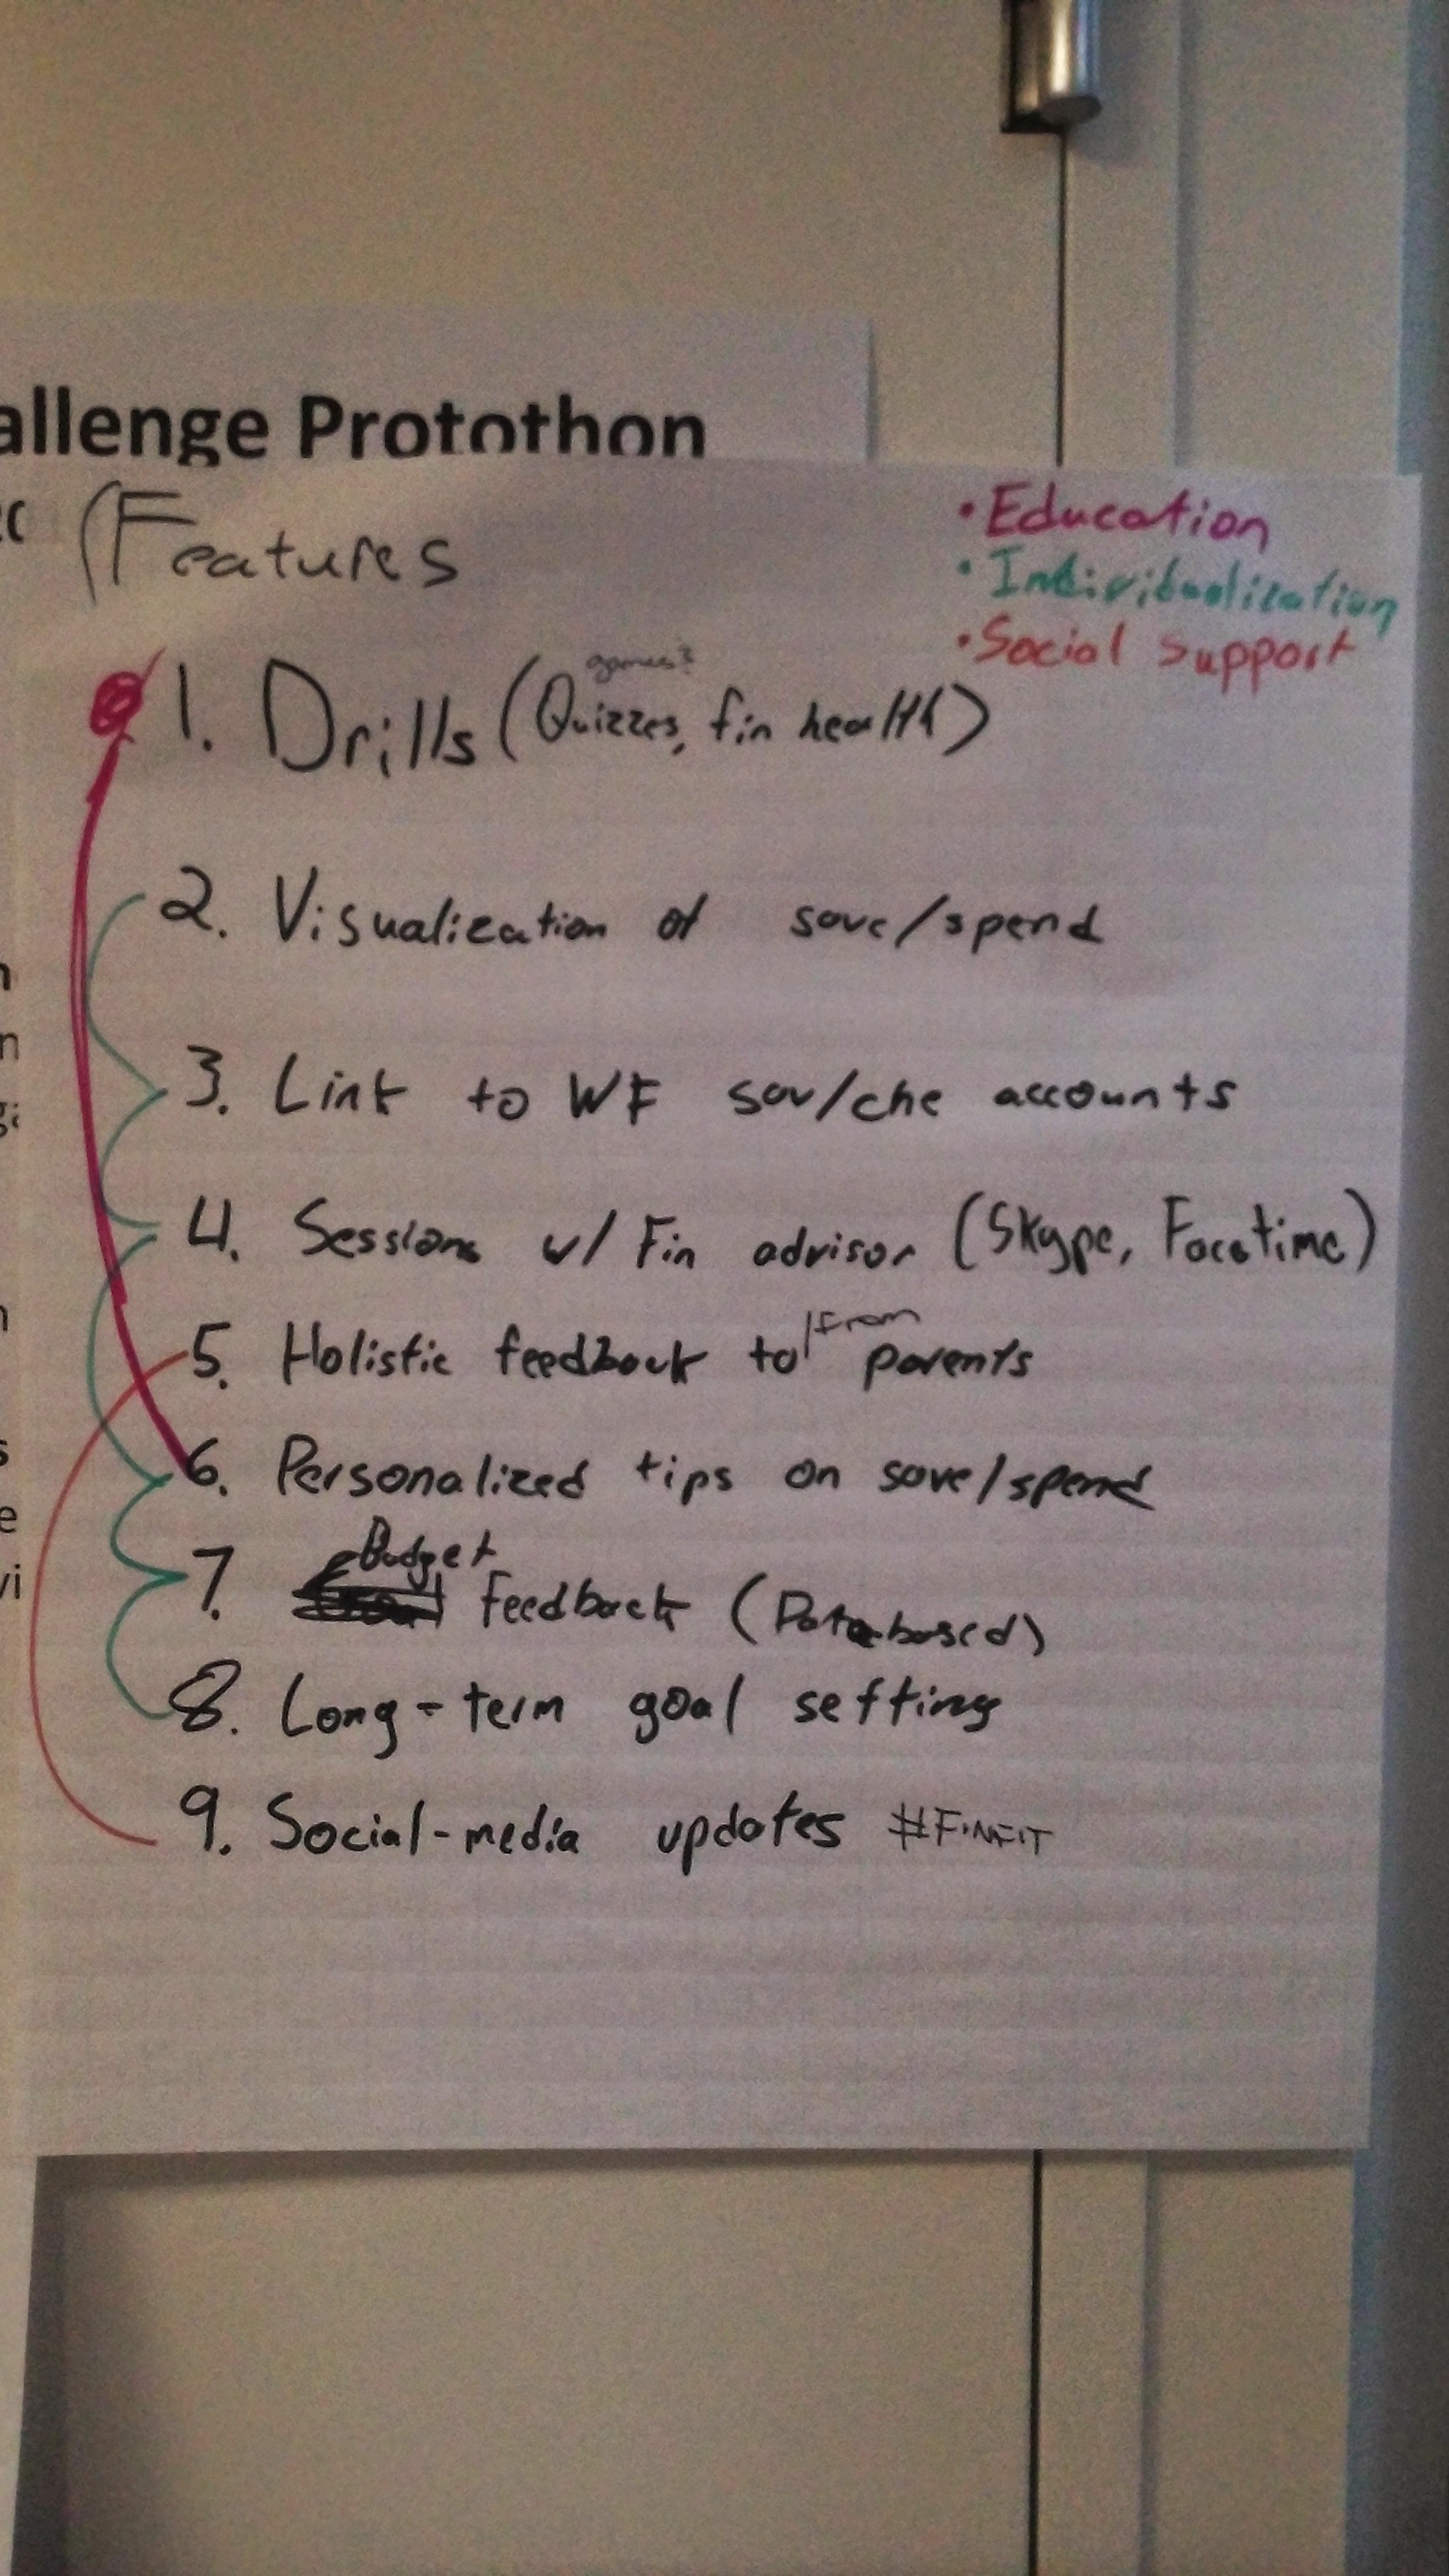 allenge Protothon
Features
• Education
• Individualization
• Social Support
games?
1. Drills (Quizzes, fin health)
2. Visualization of save/spend
3. Link to WF sav/che accounts
4. Sessions w/ Fin advisor (Skype, Facetime)
5. Holistic feedback to/from parents
6. Personalized tips on save/spend
7. Budget Feedback (Data-based)
8. Long-term goal setting
9. Social-media updates #FINFIT